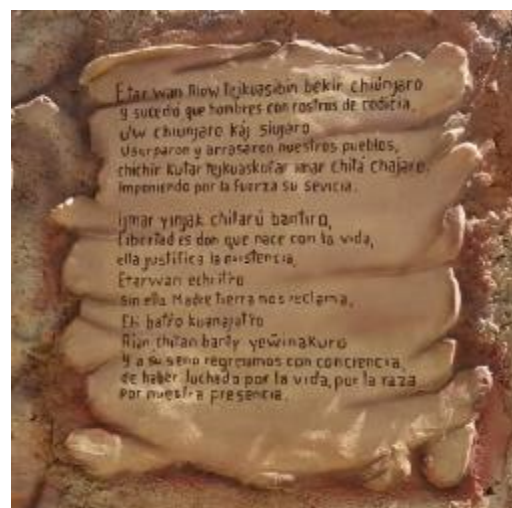 Etarwan Riow Tejkuasibin bekir chiunjaro
y sucedió que hombres con rostros de codicia,
chiunjaro Kaj siujaro
Usurparon y arrasaron nuestros pueblos,
chichir Kutar Tejkuaskutar imar Chitá chajaro.
Imponiendo por la fuerza su sevicia.
ijmar yinjak chitarú bantiro,
Libertad es don que nace con la vida,
ella justifica la existencia,
Etarwan echitro
sin ella Madre tierra nos reclama,
batro kuanajatro
chitan yewinakuro
y a su seno regresamos con conciencia,
de haber luchado por la vida, por la raza
por nuestra presencia.